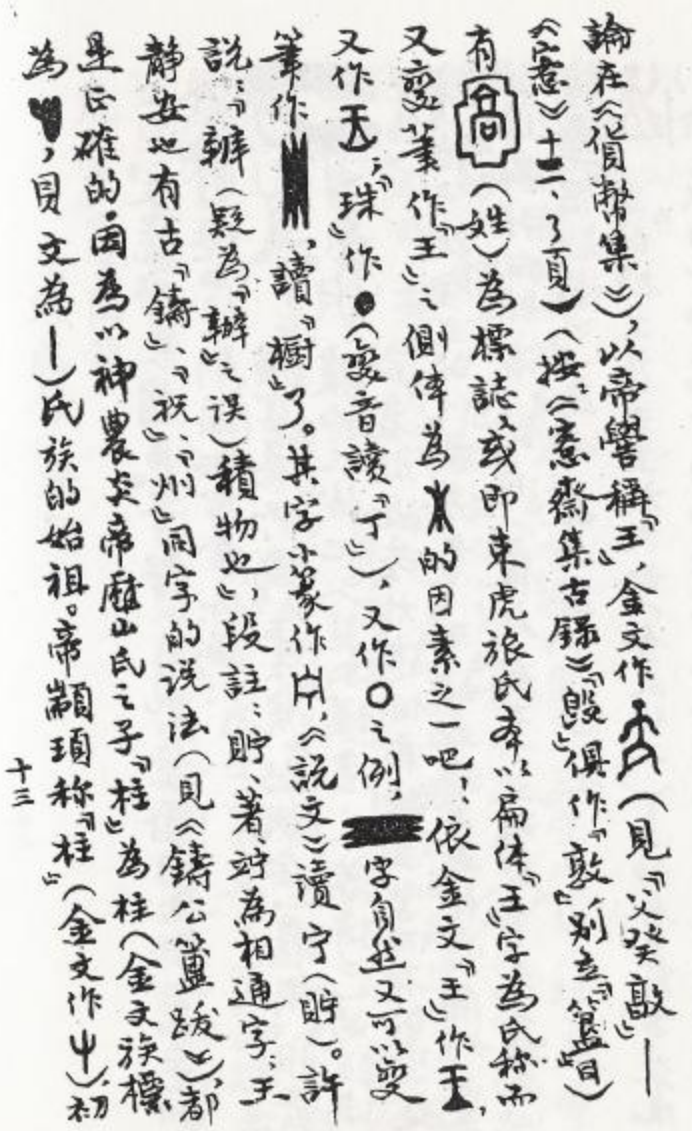 論在《貨幣集》)，以帝嚳稱『王』，金文作(見『父癸敦』—
《愙》十二、了頁)(按：《愙齋集古錄》『毁』俱作『敦』别立『簋』目)
有(姓)為標誌，或即東虎旅氏本以扁体『王』字為氏称而
又變筆作『王』之側体為的因素之一吧！依金文『王』作，
又作；『珠』作●(變音讀『丁』)，又作○之例，字自然又可以變
筆作，讀『櫥』了。其字小篆作，《説文》讀宁(貯)。許
説：『辨(疑為『辦』之误)積物也』，段註：貯、著、竚為相通字；王
静安也有古『鑄』、『祝』、『州』同字的说法(見《鑄公簠跋》)，都
是正確的。因為以神農炎帝厤山氏之子『柱』為柱(金文族標
為，貝文為｜)氏族的始祖。帝顓頊称『柱』(金文作)，初
十三